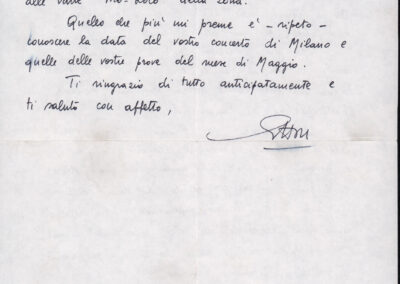 alle varie Pro-Loco della zona.
Quello che più mi preme è - ripeto -
conoscere la data del vostro concerto di Milano e
quelle delle vostre prove del mese di Maggio.
Ti ringrazio di tutto anticipatamente e
ti saluto con affetto,